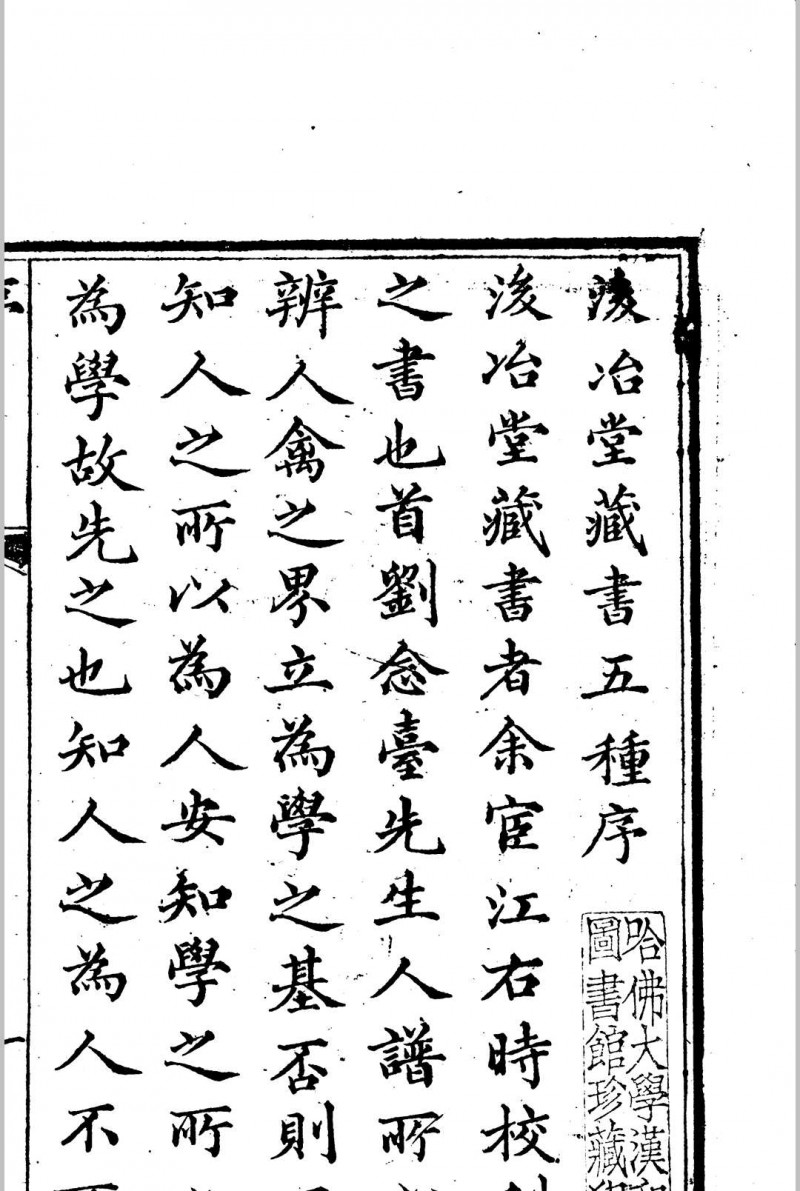 浚冶堂藏書五種序
哈佛大學漢
圖書館珍藏
浚冶堂藏書者余宦江右時校
之書也首劉念臺先生人譜所
辨人禽之界立為學之基否則
知人之所以為人安知學之所
為學故先之也知人之為人不